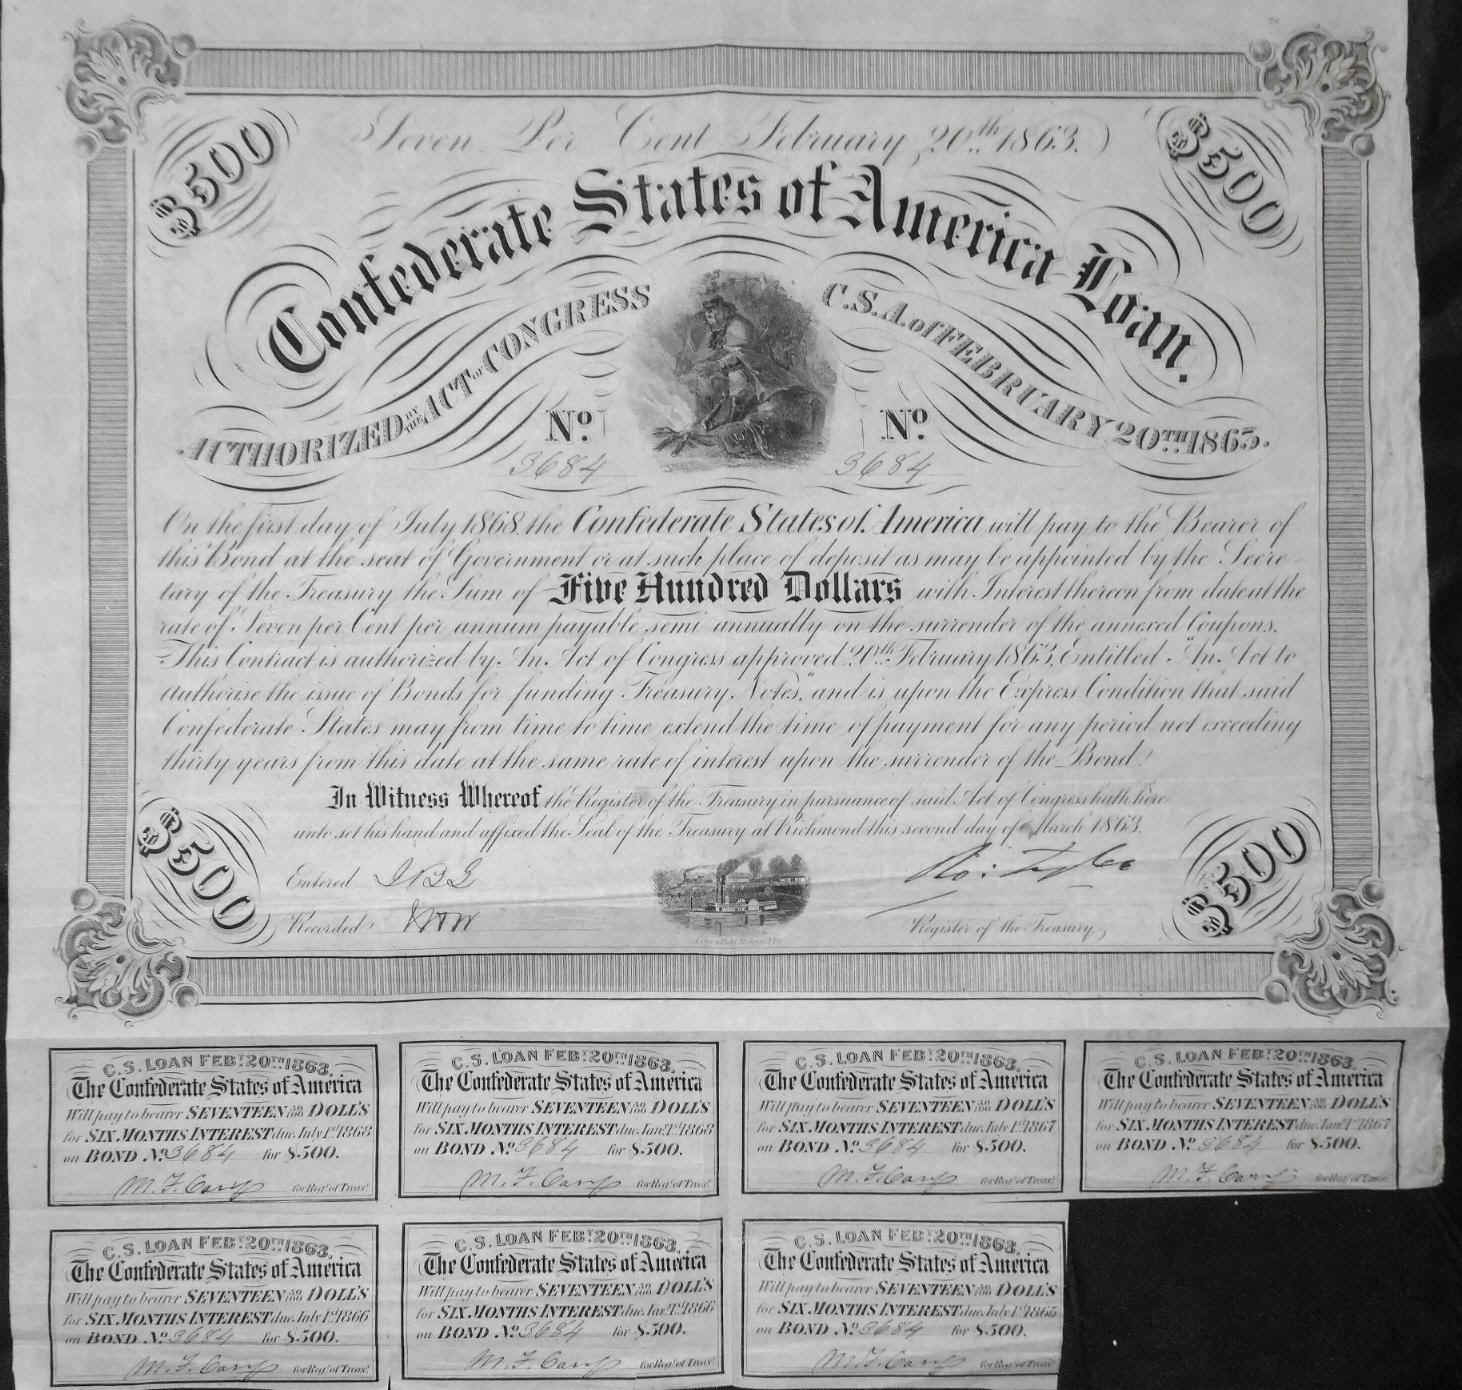 $500
Seven Per Cent February 20th 1863.
$500
Confederate States of America Loan.
AUTHORIZED BY THE ACT OF CONGRESS C.S.A. of FEBRUARY 20TH 1863.
No. No.
3684 3684
On the first day of July 1868 the Confederate States of America will pay to the Bearer of
this Bond at the seat of Government or at such place of deposit as may be appointed by the Secre
tary of the Treasury the Sum of Five Hundred Dollars with Interest thereon from date at the
rate of Seven per Cent per annum payable semi annually on the surrender of the annexed Coupons.
This Contract is authorized by An Act of Congress approved 20th February 1863, Entitled "An Act to
authorise the issue of Bonds for funding Treasury Notes," and is upon the Express Condition that said
Confederate States may from time to time extend the time of payment for any period not exceeding
thirty years from this date at the same rate of interest upon the surrender of the Bond.
In Witness Whereof the Register of the Treasury in pursuance of said Act of Congress hath here
unto set his hand and affixed the Seal of the Treasury at Richmond this second day of March 1863.
$500
$500
Entered
Ro: Tyler
Recorded
Register of the Treasury
C.S. LOAN FEBY. 20TH 1863.
The Confederate States of America
Will pay to bearer SEVENTEEN 50/100 DOLLS
for SIX MONTHS INTEREST due July 1st 1868
on BOND No. 3684 for $500.
for Regr. of Treasy.
C.S. LOAN FEBY. 20TH 1863.
The Confederate States of America
Will pay to bearer SEVENTEEN 50/100 DOLLS
for SIX MONTHS INTEREST due Jany. 1st 1868
on BOND No. 3684 for $500.
for Regr. of Treasy.
C.S. LOAN FEBY. 20TH 1863.
The Confederate States of America
Will pay to bearer SEVENTEEN 50/100 DOLLS
for SIX MONTHS INTEREST due July 1st 1867
on BOND No. 3684 for $500.
for Regr. of Treasy.
C.S. LOAN FEBY. 20TH 1863.
The Confederate States of America
Will pay to bearer SEVENTEEN 50/100 DOLLS
for SIX MONTHS INTEREST due Jany. 1st 1867
on BOND No. 3684 for $500.
for Regr. of Treasy.
C.S. LOAN FEBY. 20TH 1863.
The Confederate States of America
Will pay to bearer SEVENTEEN 50/100 DOLLS
for SIX MONTHS INTEREST due July 1st 1866
on BOND No. 3684 for $500.
for Regr. of Treasy.
C.S. LOAN FEBY. 20TH 1863.
The Confederate States of America
Will pay to bearer SEVENTEEN 50/100 DOLLS
for SIX MONTHS INTEREST due Jany. 1st 1866
on BOND No. 3684 for $500.
for Regr. of Treasy.
C.S. LOAN FEBY. 20TH 1863.
The Confederate States of America
Will pay to bearer SEVENTEEN 50/100 DOLLS
for SIX MONTHS INTEREST due July 1st 1865
on BOND No. 3684 for $500.
for Regr. of Treasy.